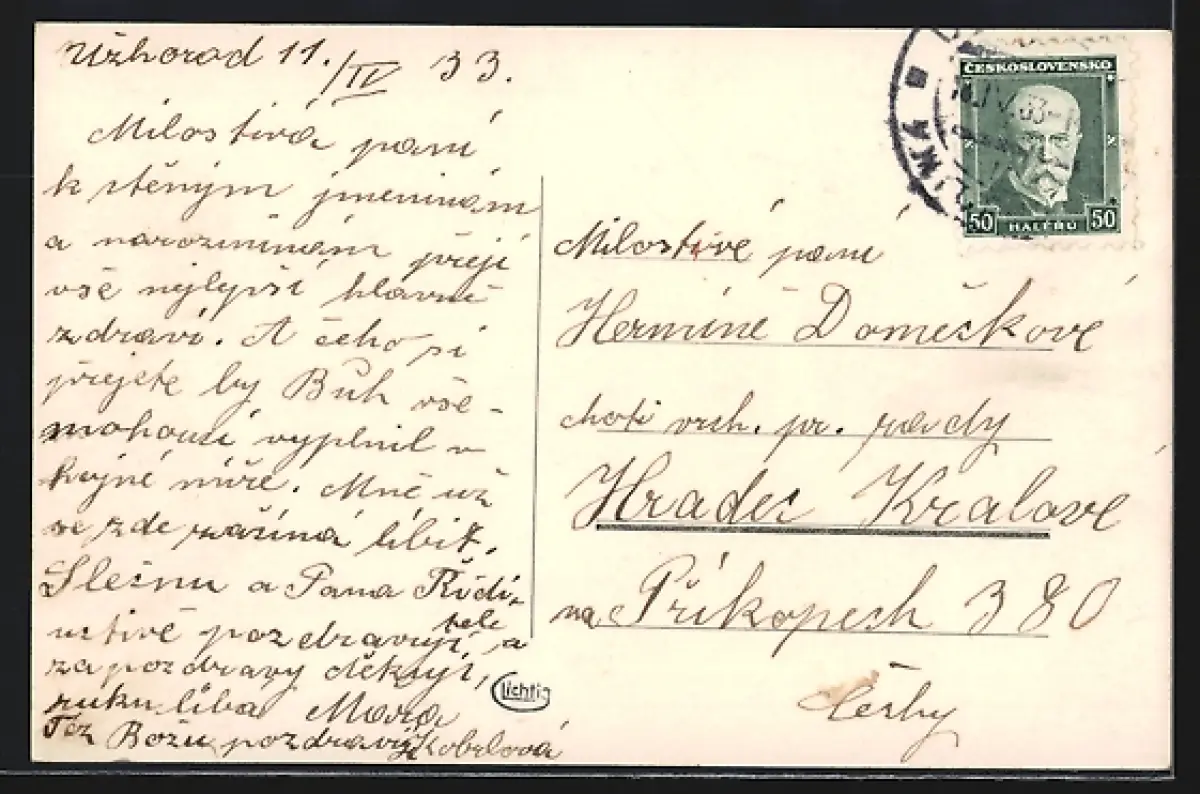 Užhorod 11./IV 33.
Milostivá paní
k ctěným jmeninám
a narozeninám přeji
vše nejlepší hlavně
zdraví. A čeho si
přejete by Bůh vše-
mohoucí vyplnil v
hojné míře. Mně už
se zde začíná líbit.
Slečnu a Pana Ředi-
tele
uctivě pozdravuji, a
za pozdravy děkuji,
ruku líbá Mara
Též Božu pozdravuj Kobrlová
Lichtig
ČESKOSLOVENSKO
50 HALÉŘŮ 50
Milostivé paní
Hermíně Domečkové
choti vrch. pr. rady
Hradec Králové
na Příkopech 380
Čechy